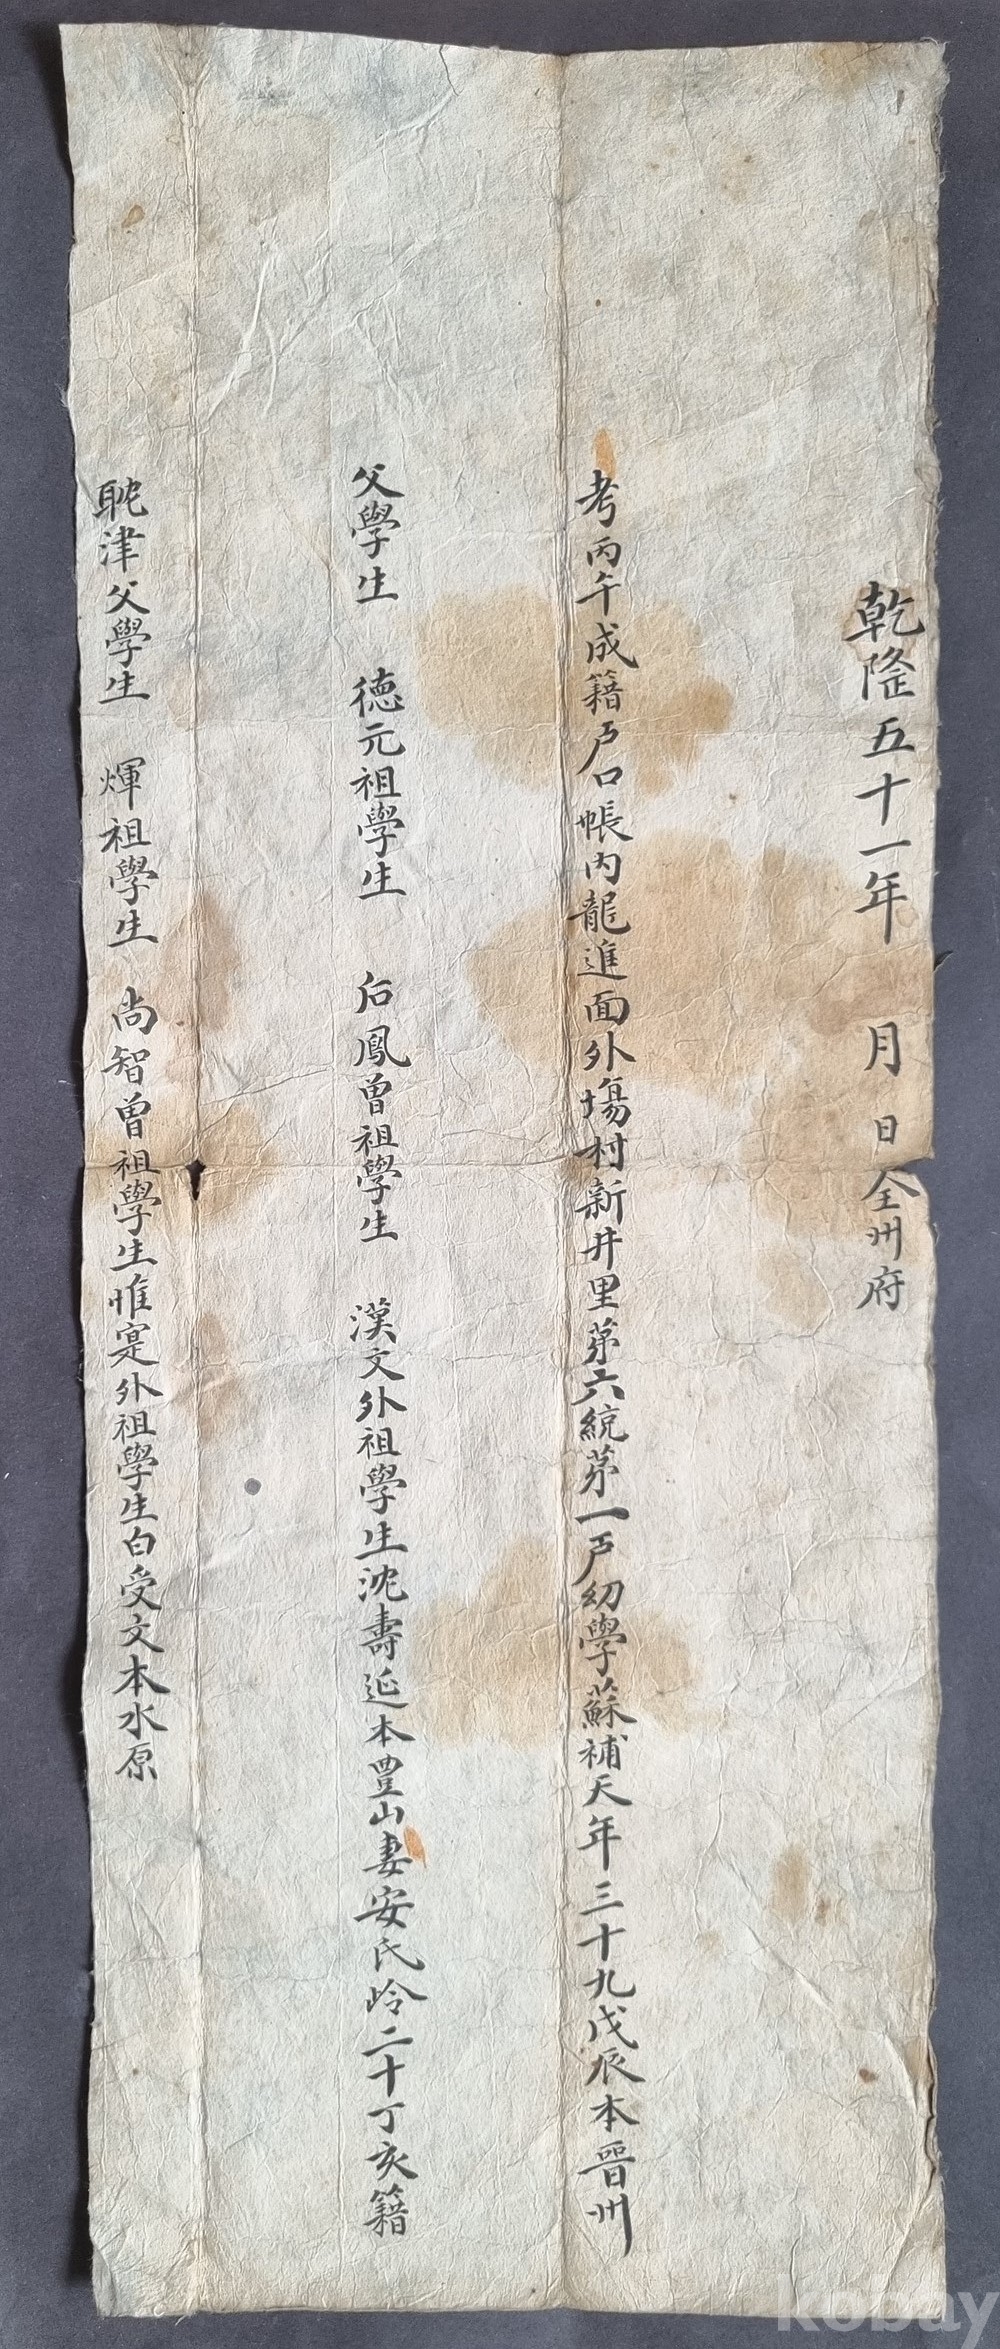 乾隆五十一年 月 日全州府
考丙午成籍戶口帳內龍進面外塲村新井里苐六統苐一戶幼學蘇補天年三十九戊辰本晋州
父學生 德元祖學生 后鳳曾祖學生 漢文外祖學生沈壽延本豊山妻安氏岭二十丁亥籍
耽津父學生 煇祖學生 尚智曾祖學生惟寔外祖學生白受文本水原
kobay